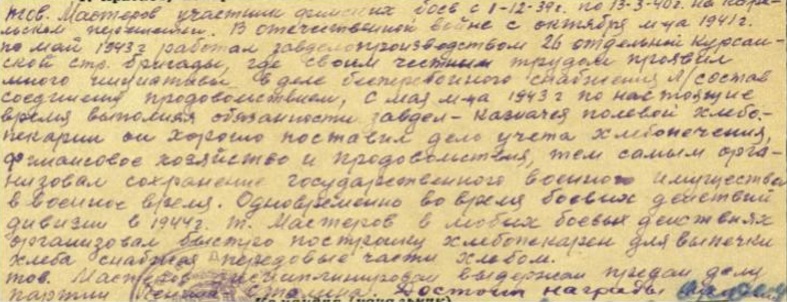 тов. Мастеров участник финских боев с 1-12-39г. по 13-3-40г. на Каре-
льском перешейки. В отечественной войне с октября м-ца 1941г.
по май 1943г работал завделопроизводством 26 отдельной курсан-
ской стр. бригады, где своим честным трудом проявил
много инициативы в деле бесперебойного снабжения л/состав
соединения продовольствием, с мая м-ца 1943г по настоящие
время выполняя обязанности завдел-казначея полевой хлебо-
пекарни он хорошо поставил дело учета хлебопечения,
финансовое хозяйство и продовольствия, тем самым орга-
низовал сохранение государственного военного имущества
в военное время. Одновременно во время боевых действий
дивизии в 1944г. т. Мастеров в любых боевых действиях
организовал быструю постройку хлебопекарен для выпечки
хлеба снабжая передовые части хлебом.
тов. Мастеров дисциплинирован выдержан предан делу
партии Ленина Сталина. Достоин награды
Командир (начальник)